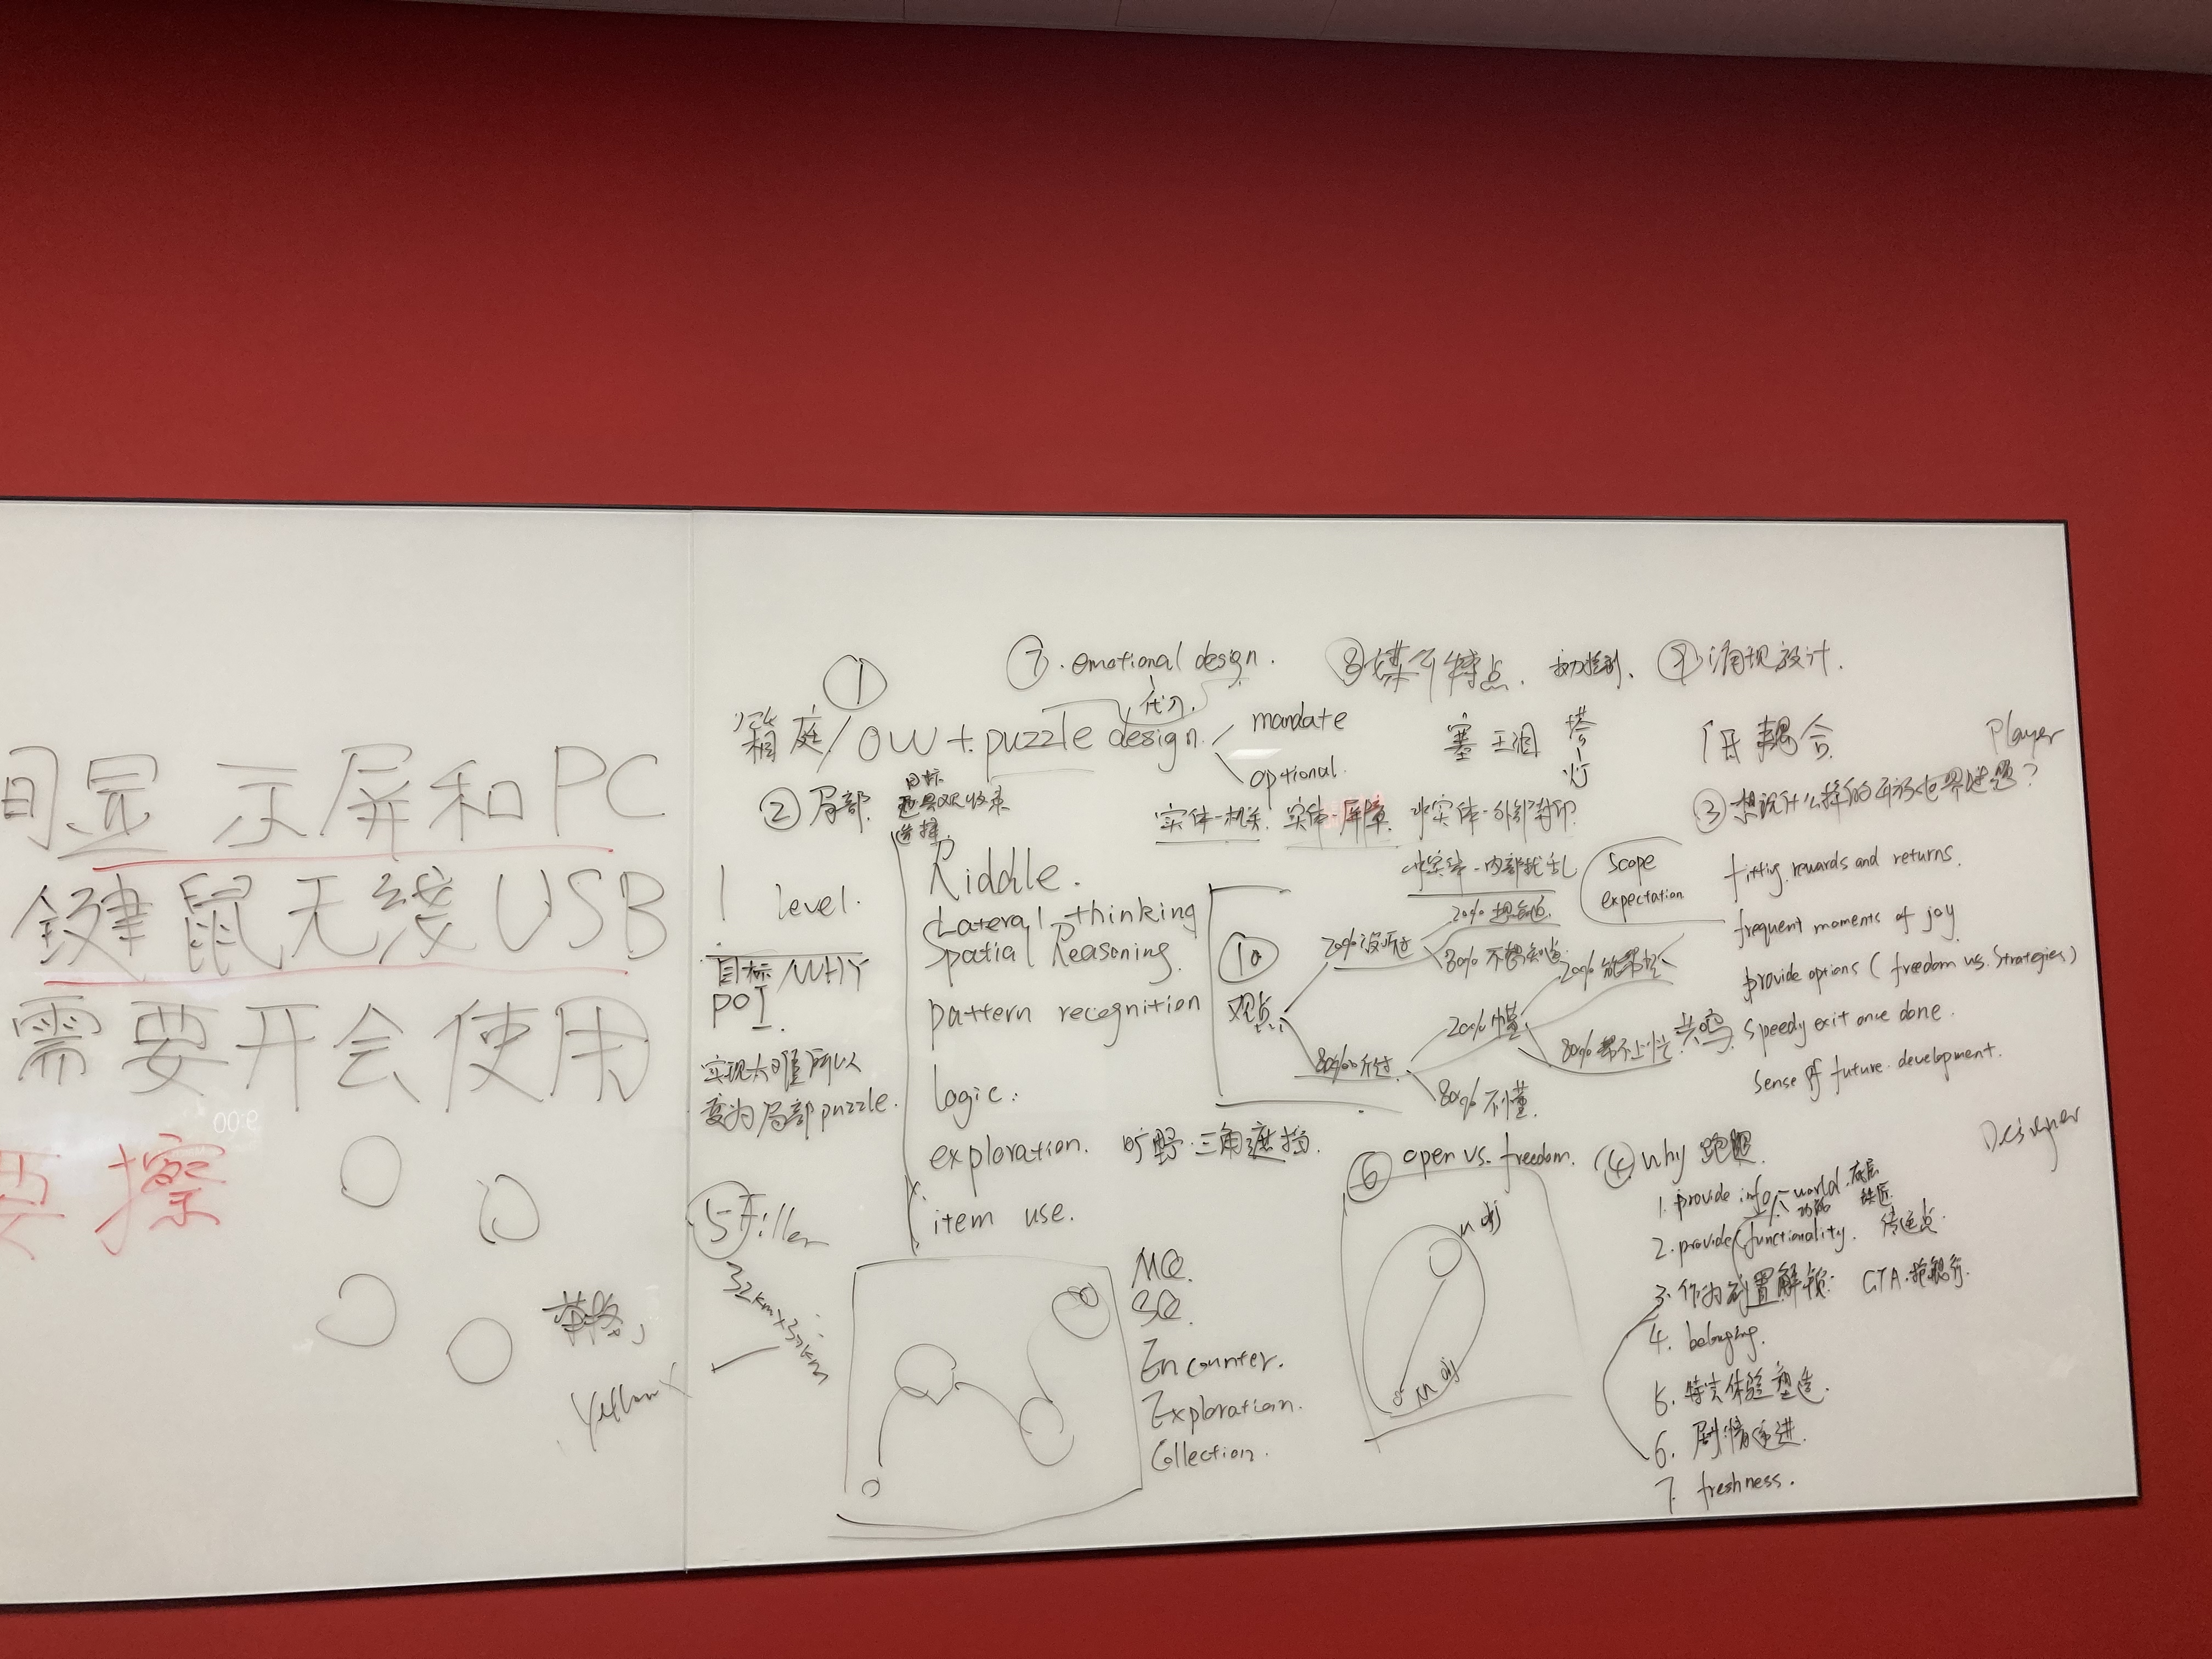 显示屏和PC
键鼠无线USB
需要开会使用
要擦
Yellow
①
箱庭/OW + puzzle design
mandate
optional.
⑦. emotional design.
代入.
⑧媒介特点.
塞王洞
塔
灯
⑨涌现设计.
耦合
Player
②局部
目标
道具
收束
选择
实体-机关. 实体-屏障. 非实体-外部封印
非实体-内部扰乱
level.
目标/WHY
POI.
实现太难所以
变为局部puzzle.
Riddle.
Lateral thinking
Spatial Reasoning.
pattern recognition
logic.
exploration. 旷野.三角遮挡.
item use.
⑩
观点
20%没听过
80%听过
20%想知道
80%不想知道
20%懂
80%不懂.
共鸣
③想玩什么样的开放世界谜题?
scope
expectation
fitting rewards and returns.
frequent moments of joy
provide options (freedom vs. strategies)
speedy exit once done.
sense of future development.
Designer
④why 跑腿
1. provide info - world.
功能
2. provide functionality. 传送点.
3. 作为前置解锁. GTA.抢银行.
4. belonging.
5. 特定体验塑造.
6. 剧情递进.
7. freshness.
⑤Filler
32km×32km
MQ.
SQ.
Encounter.
Exploration.
Collection.
⑥ open vs. freedom.